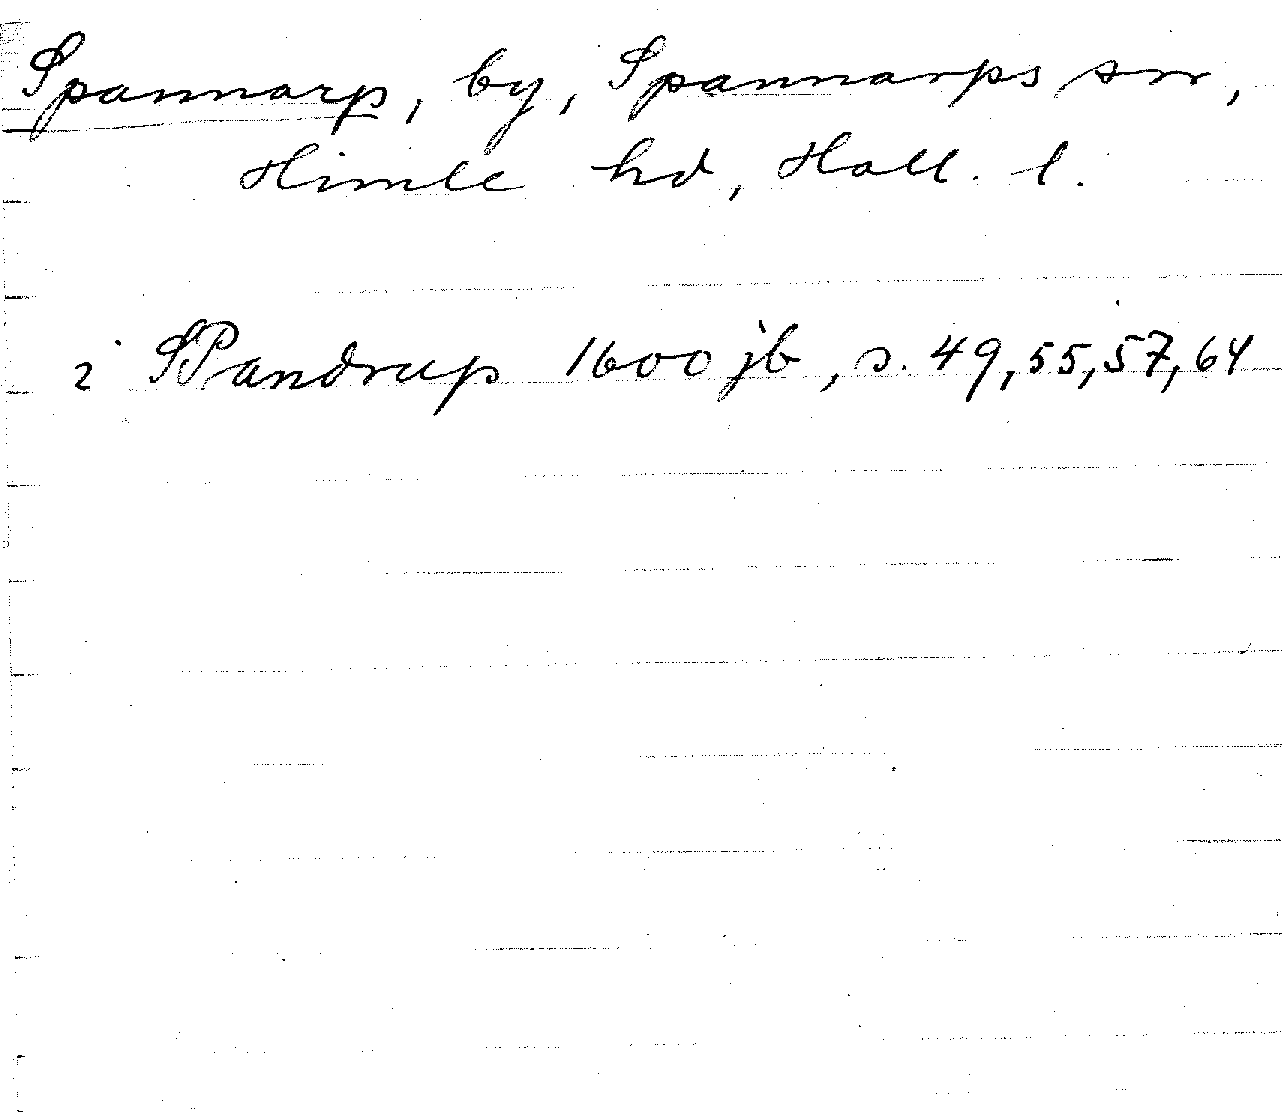 Spannarp, by, Spannarps sn,
Himle hd, Hall. l.
i SPandrup 1600 jb, s. 49,55,57,64